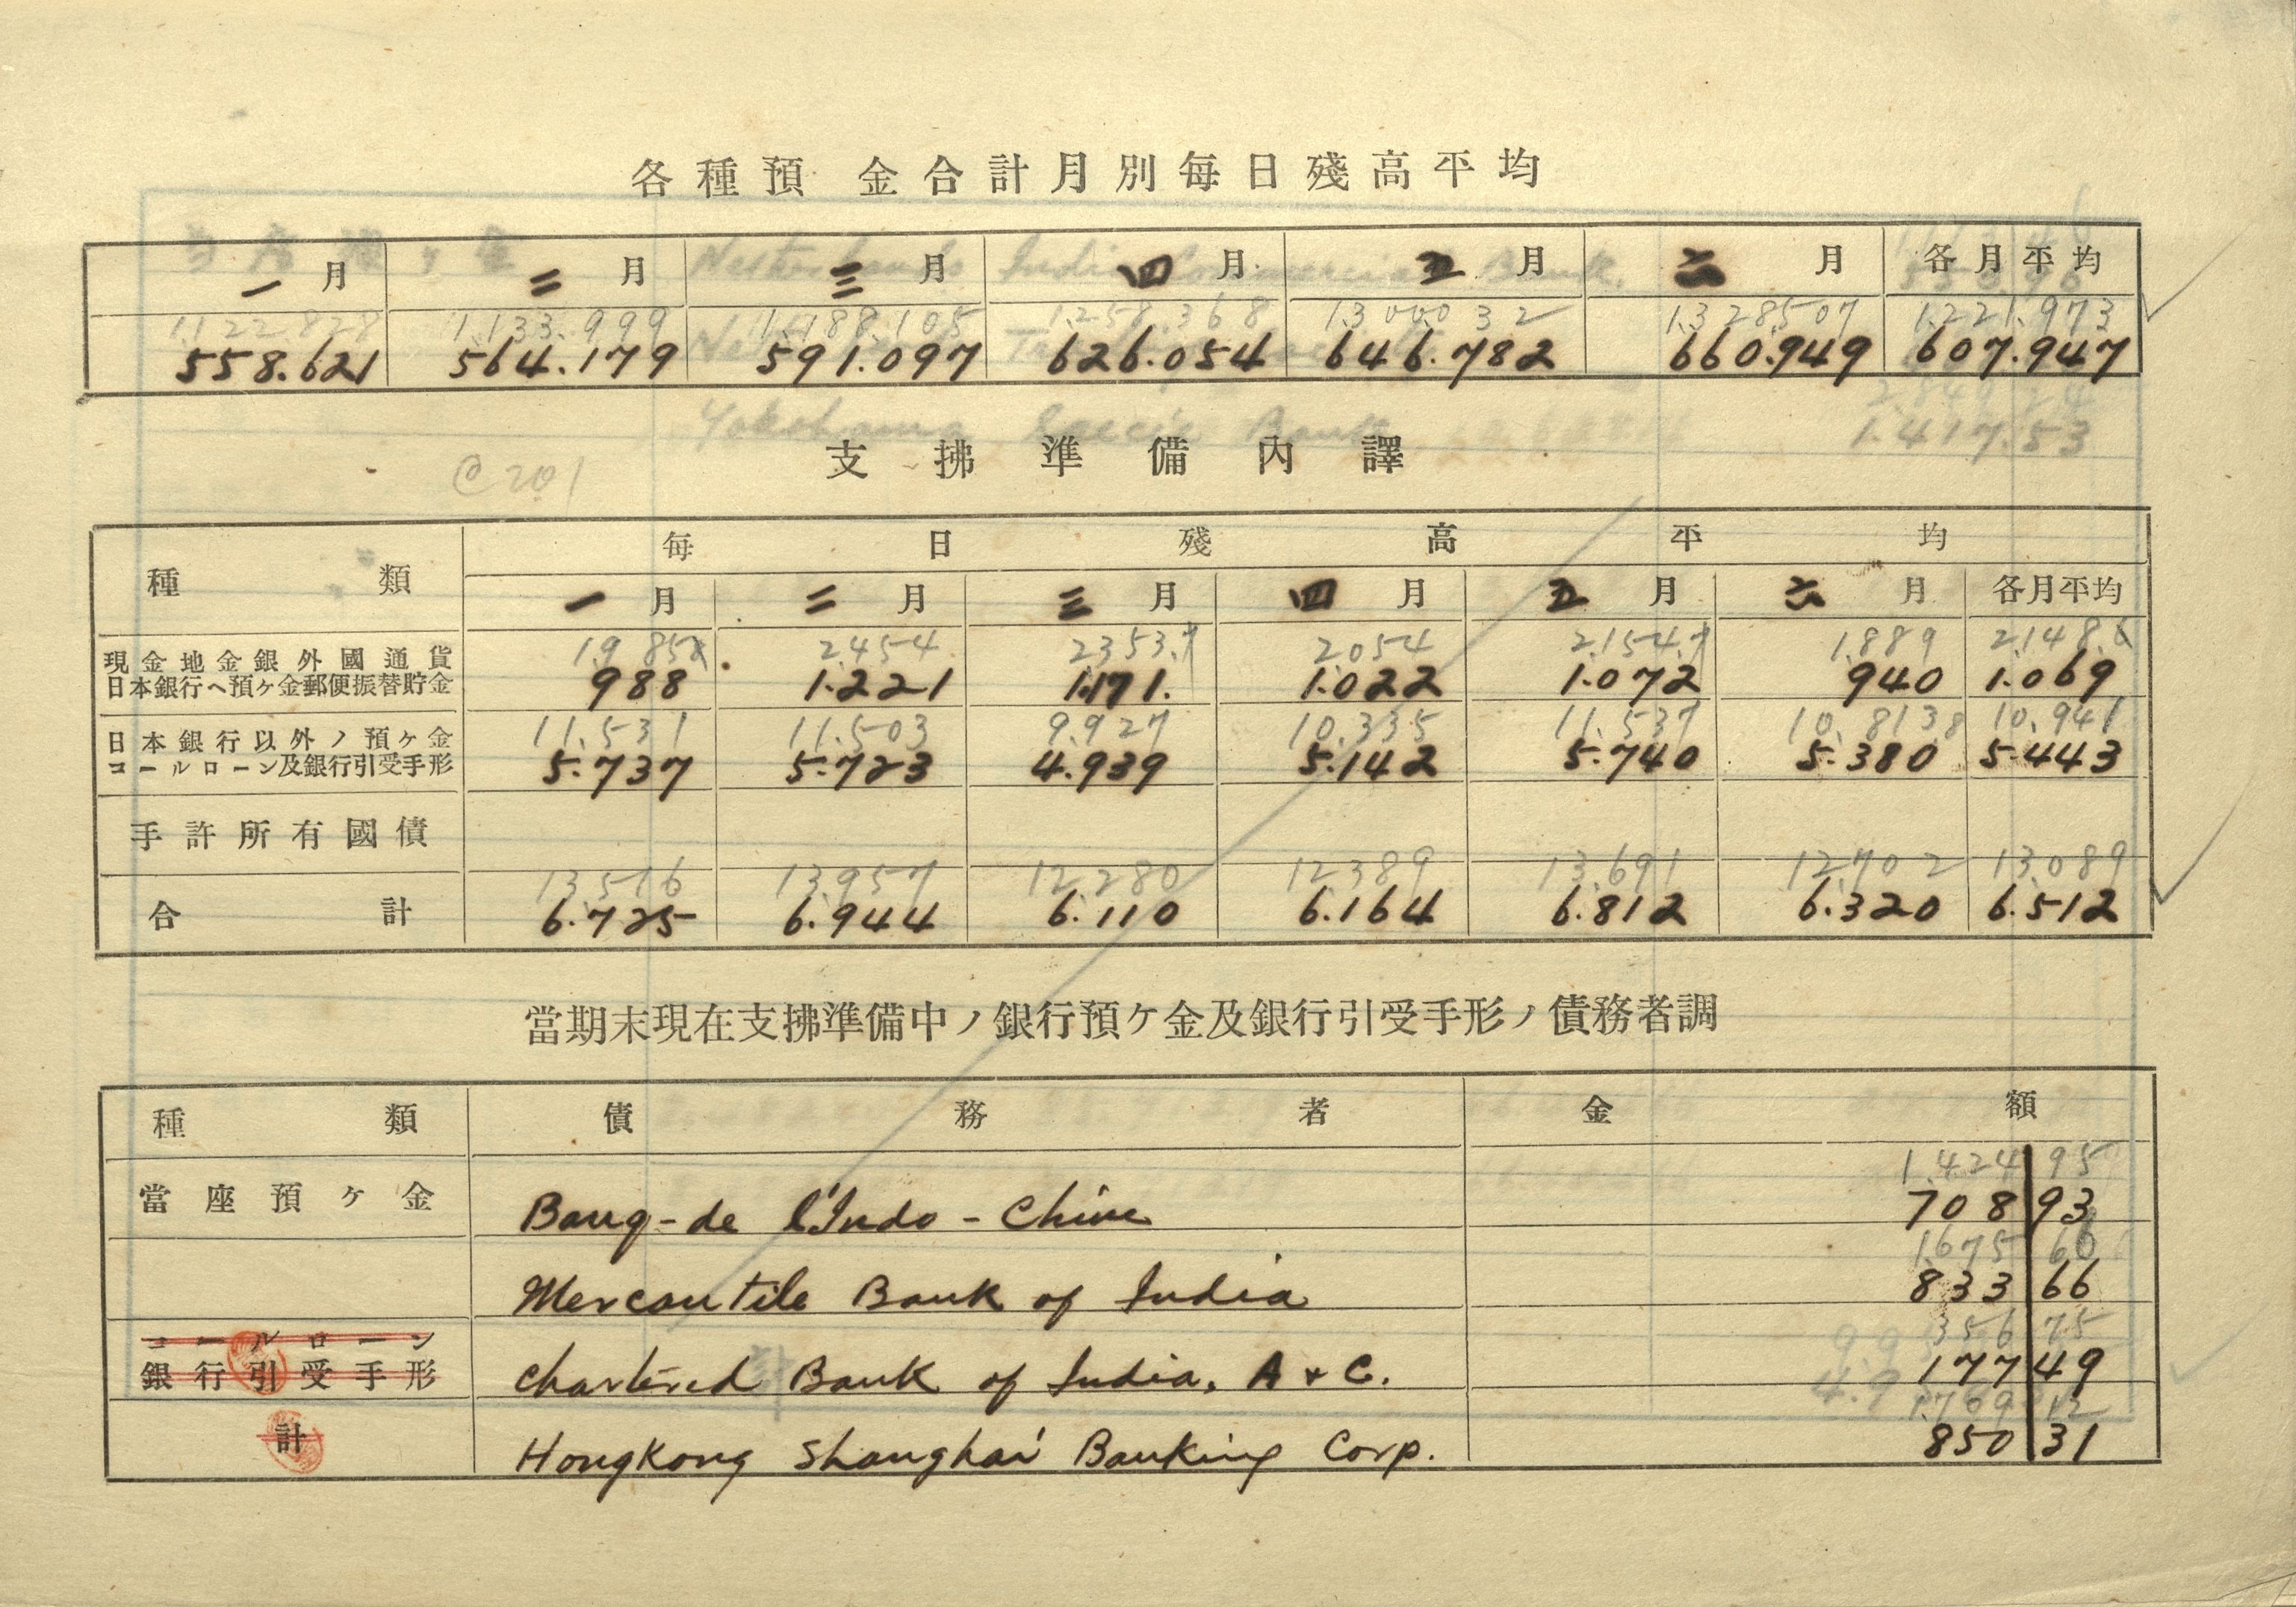 各種預金合計月別毎日殘高平均
一月 二月 三月 四月 五月 六月 各月平均
1,122,828 1,133,999 1,188,105 1,258,368 1,300,032 1,328,507 1,221,973
558.621 564.179 591.097 626.054 646.782 660.949 607.947
Yokohama Specie Bank
1.417.53
支拂準備內譯
C 201
種類 毎日殘高平均
一月 二月 三月 四月 五月 六月 各月平均
現金地金銀外國通貨
日本銀行ヘ預ヶ金郵便振替貯金
2,454 2,054 1,889
988 1.221 1.171. 1.022 1.072 940 1.069
日本銀行以外ノ預ヶ金
コールローン及銀行引受手形
11,531 11,503 9,927 10,335 11,537 10,813 10,941
5.737 5.723 4.939 5.142 5.740 5.380 5.443
手許所有國債
合計
13,516 13,957 12,280 12,389 13,691 12,702 13,089
6.725 6.944 6.110 6.164 6.812 6.320 6.512
當期末現在支拂準備中ノ銀行預ケ金及銀行引受手形ノ債務者調
種類 債務者 金額
1,424 95
當座預ヶ金 Banq-de l'Indo-Chine 708 93
1,675 66
Mercantile Bank of India 833 66
356 75
コールローン
銀行引受手形 Chartered Bank of India, A & C. 177 49
1,709 12
計 Hongkong Shanghai Banking Corp. 850 31